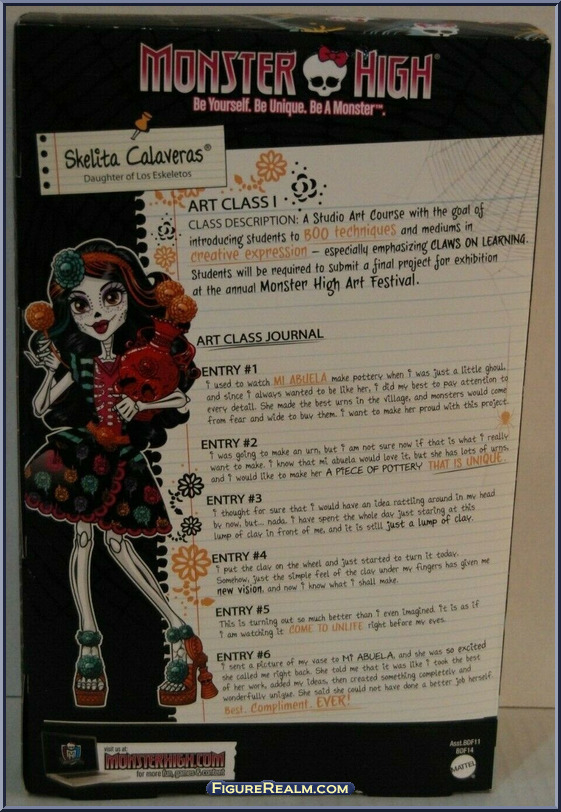 MONSTER HIGH®
Be Yourself. Be Unique. Be A Monster™.
Skelita Calaveras®
Daughter of Los Eskeletos
ART CLASS I
CLASS DESCRIPTION: A Studio Art Course with the goal of
introducing students to BOO techniques and mediums in
creative expression – especially emphasizing CLAWS ON LEARNING.
Students will be required to submit a final project for exhibition
at the annual Monster High Art Festival.
ART CLASS JOURNAL
ENTRY #1
i used to watch MI ABUELA make pottery when i was just a little ghoul,
and since i always wanted to be like her, i did my best to pay attention to
every detail. She made the best urns in the village, and monsters would come
from fear and wide to buy them. i want to make her proud with this project.
ENTRY #2
i was going to make an urn, but i am not sure now if that is what i really
want to make. i know that mi abuela would love it, but she has lots of urns,
and i would like to make her A PIECE OF POTTERY THAT IS UNIQUE.
ENTRY #3
i thought for sure that i would have an idea rattling around in my head
by now, but... nada. i have spent the whole day just staring at this
lump of clay in front of me, and it is still just a lump of clay.
ENTRY #4
i put the clay on the wheel and just started to turn it today.
Somehow, just the simple feel of the clay under my fingers has given me
new vision, and now i know what i shall make.
ENTRY #5
This is turning out so much better than i even imagined. it is as if
i am watching it COME TO UNLIFE right before my eyes.
ENTRY #6
i sent a picture of my vase to MI ABUELA, and she was so excited
she called me right back. She told me that it was like i took the best
of her work, added my ideas, then created something completely and
wonderfully unique. She said she could not have done a better job herself.
Best. Compliment. EVER!
visit us at:
MONSTERHIGH.COM
for more fun, games & content
Asst. BDF11
BDF14
MATTEL
FIGUREREALM.COM